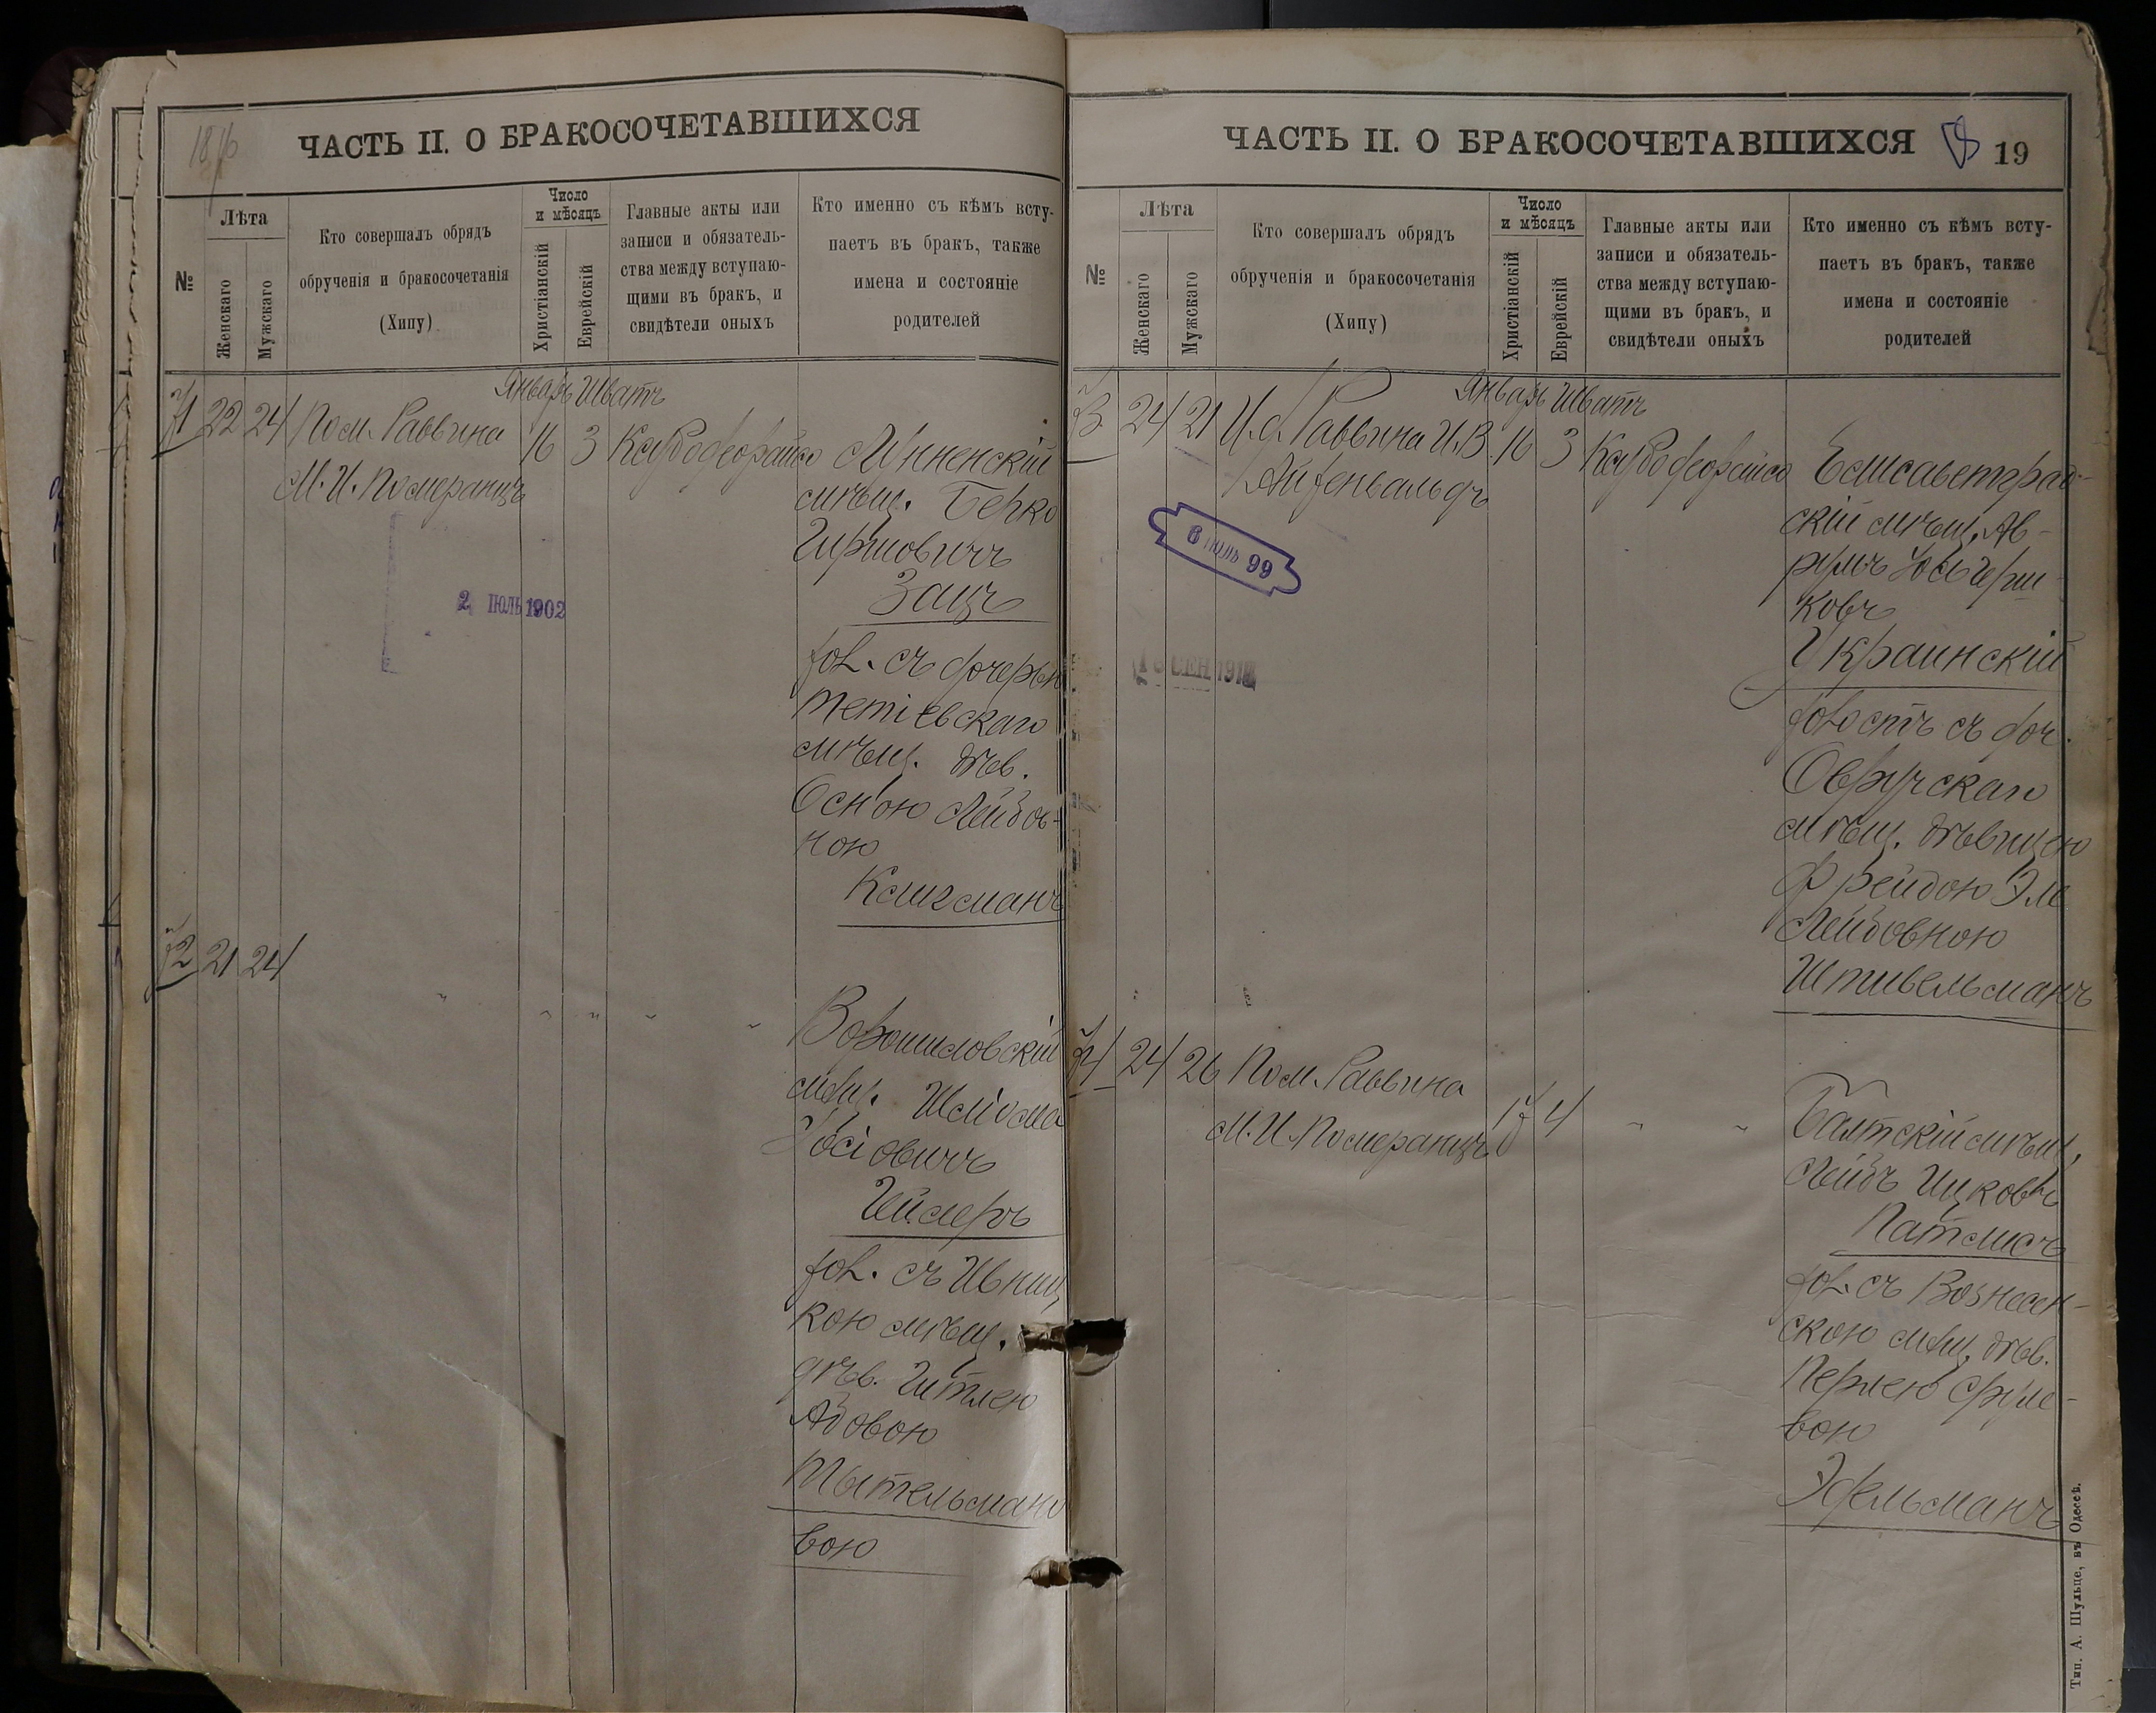 18
ЧАСТЬ II. О БРАКОСОЧЕТАВШИХСЯ
№
Лѣта
Женскаго
Мужскаго
Кто совершалъ обрядъ
обрученія и бракосочетанія
(Хипу)
Число
и мѣсяцъ
Христіанскій
Еврейскій
Главные акты или
записи и обязатель-
ства между вступаю-
щими въ бракъ, и
свидѣтели оныхъ
Кто именно съ кѣмъ всту-
паетъ въ бракъ, также
имена и состояніе
родителей
Январь Шватъ
71 22 24 Пом. Раввина 16 3
М. И. Померанцъ
мѣщ. Берко
Гиршовичъ
Зацъ
хол. съ дочерью
Тетіевскаго
мѣщ. дѣв.
Осн'ою Лейбов-
ною
Клигманъ
2 ІЮЛЬ 1902
72 21 24
Ворошиловскій
мѣщ. Шліома
Іосіовичъ
Геймеръ
хол. съ Ивниц
кою мѣщ.
дѣв. Гитлею
Абовою
Тытельмано
вою
ЧАСТЬ II. О БРАКОСОЧЕТАВШИХСЯ
19
№
Лѣта
Женскаго
Мужскаго
Кто совершалъ обрядъ
обрученія и бракосочетанія
(Хипу)
Число
и мѣсяцъ
Христіанскій
Еврейскій
Главные акты или
записи и обязатель-
ства между вступаю-
щими въ бракъ, и
свидѣтели оныхъ
Кто именно съ кѣмъ всту-
паетъ въ бракъ, также
имена и состояніе
родителей
Январь Шватъ
73 24 21 И. д. Раввина И. В. 16 3 Елисаветград-
Айзенвальдъ
скій мѣщ. Ав-
румъ Іось Герш-
ковъ
Украинскій
холостъ съ доч.
Овручскаго
мѣщ. дѣвицею
Фрейдою Эле
Лейбовною
Штивельманъ
74 24 26 Пом. Раввина
М. И. Померанцъ 17 4
Балтскій мѣщ.
Лейбъ Ицковъ
Патлисъ
хол. съ Вознесен-
скою мѣщ. дѣв.
Перлею Сруле-
вою
Эдельманъ
Тип. А. Шульце, въ Одессѣ.